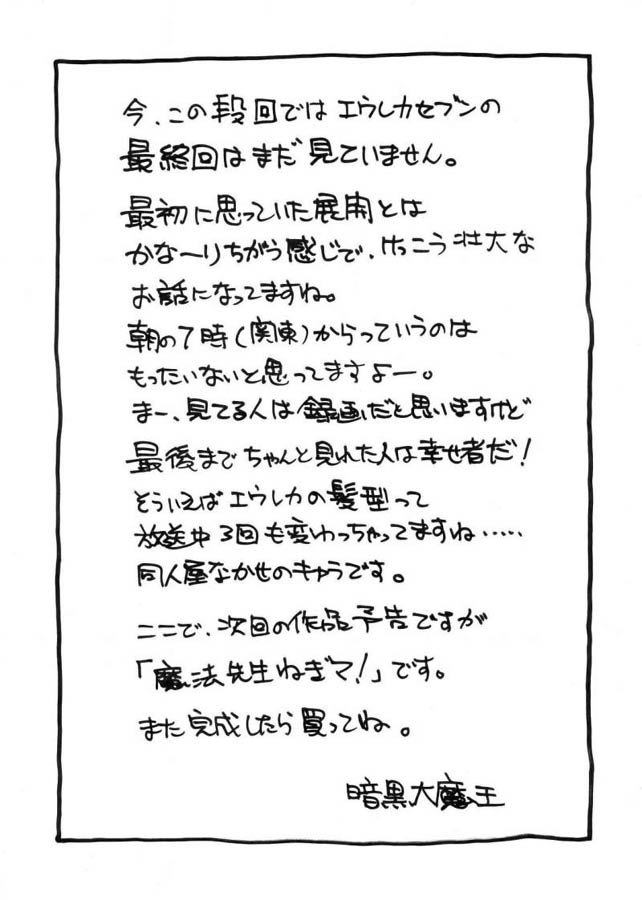 今、この段回ではエウレカセブンの
最終回はまだ見ていません。
最初に思っていた展開とは
かな〜りちがう感じで、けっこう壮大な
お話になってますね。
朝の7時(関東)からっていうのは
もったいないと思ってますよー。
まー、見てる人は録画だと思いますけど
最後までちゃんと見れた人は幸せ者だ!
そういえばエウレカの髪型って
放送中3回も変わっちゃってますね……
同人屋なかせのキャラです。
ここで、次回の作品予告ですが
「魔法先生ねぎマ!」です。
また完成したら買ってね。
暗黒大魔王